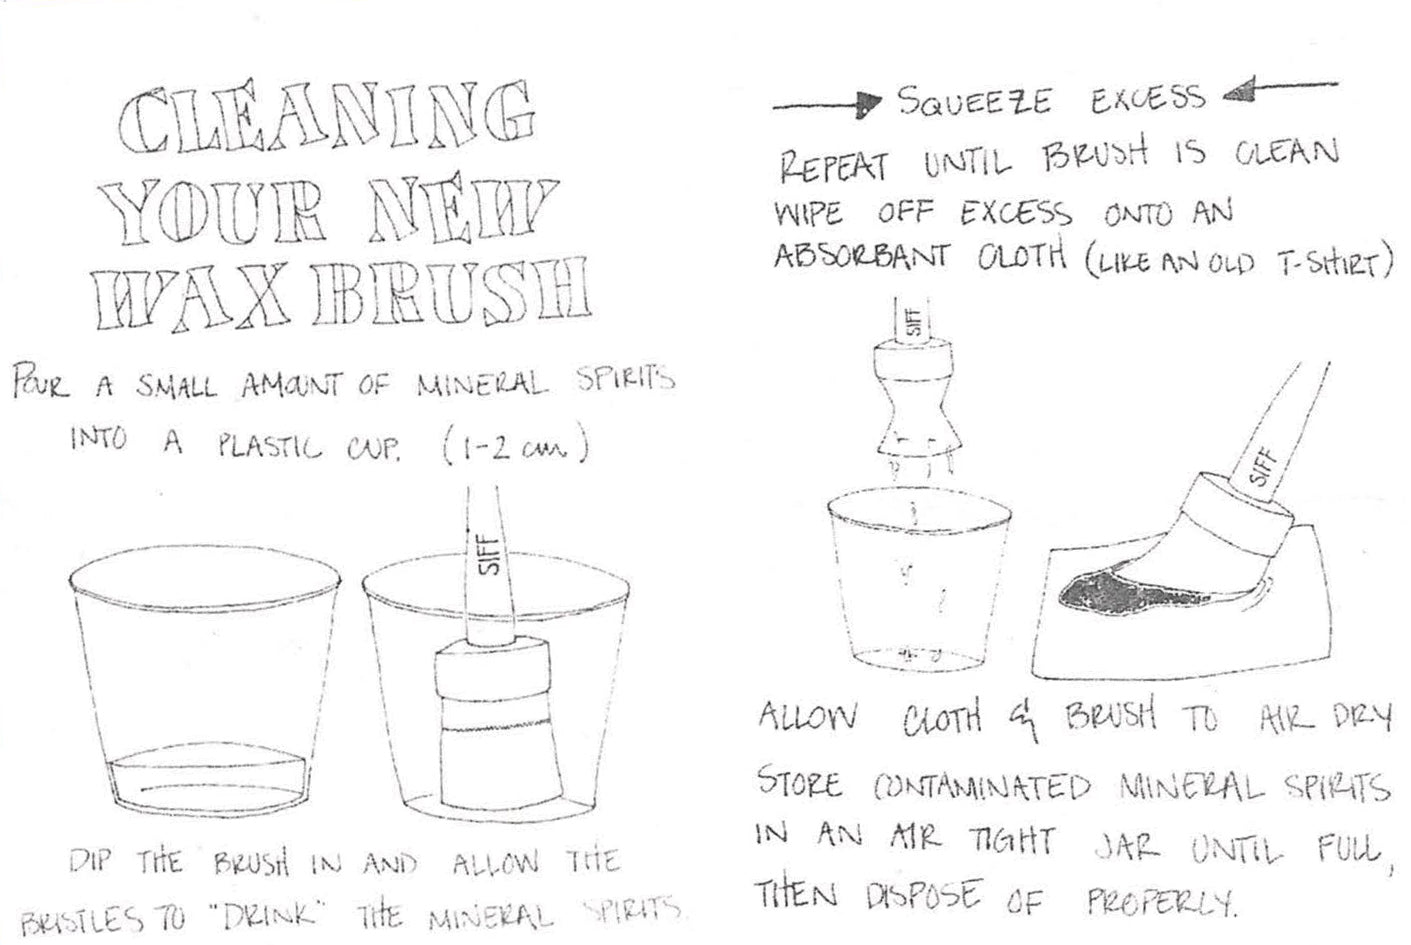 CLEANING
YOUR NEW
WAX BRUSH
POUR A SMALL AMOUNT OF MINERAL SPIRITS
INTO A PLASTIC CUP. (1-2 cm)
SIFF
DIP THE BRUSH IN AND ALLOW THE
BRISTLES TO "DRINK" THE MINERAL SPIRITS.
SQUEEZE EXCESS
REPEAT UNTIL BRUSH IS CLEAN
WIPE OFF EXCESS ONTO AN
ABSORBANT CLOTH (LIKE AN OLD T-SHIRT)
SIFF
SIFF
ALLOW CLOTH & BRUSH TO AIR DRY
STORE CONTAMINATED MINERAL SPIRITS
IN AN AIR TIGHT JAR UNTIL FULL,
THEN DISPOSE OF PROPERLY.